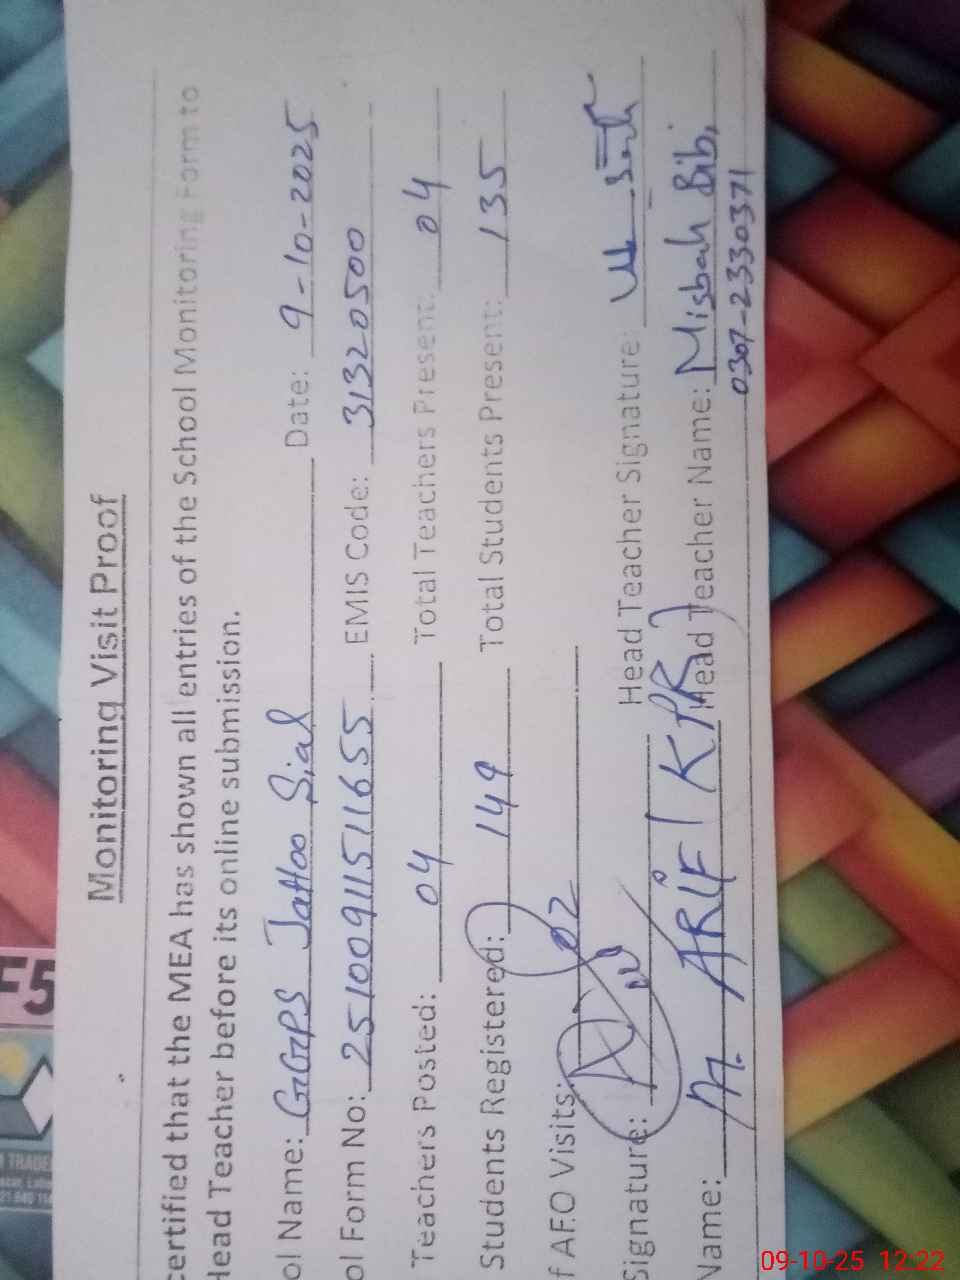 Monitoring Visit Proof
certified that the MEA has shown all entries of the School Monitoring Form to
Head Teacher before its online submission.
ol Name: GGPS Jattoo Sial Date: 9-10-2025
ol Form No: 2510091151511655 EMIS Code: 31320500
Teachers Posted: 04 Total Teachers Present: 04
Students Registered: 149 Total Students Present: 135
f AFO Visits: 02
Signature: Head Teacher Signature:
Name: M. ARIF (KPR) Head Teacher Name: Misbah Bibi
0307-2330371
F5
TRADE
09-10-25 12:22